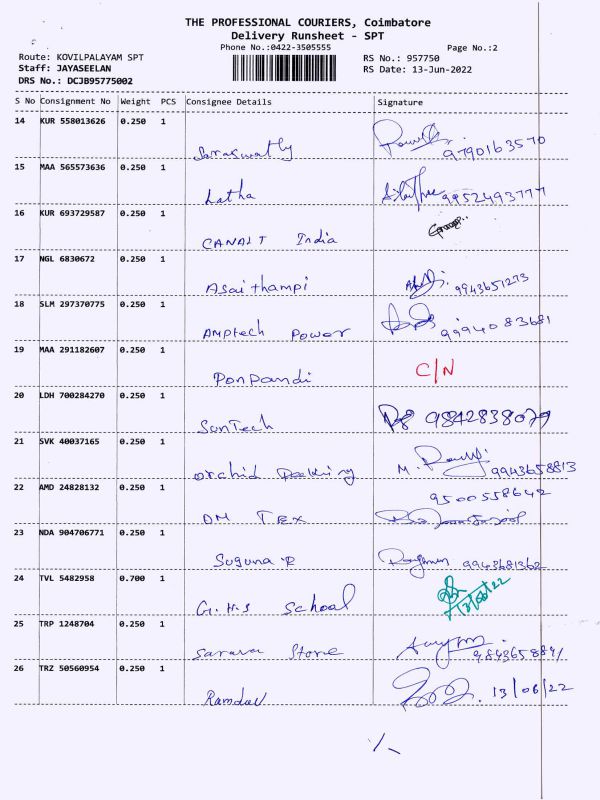 THE PROFESSIONAL COURIERS, Coimbatore
Delivery Runsheet - SPT
Phone No.:0422-3505555
Page No.:2
Route: KOVILPALAYAM SPT
RS No.: 957750
Staff: JAYASEELAN
RS Date: 13-Jun-2022
DRS No.: DCJB95775002
S No Consignment No Weight PCS Consignee Details Signature
14 KUR 558013626 0.250 1
Saraswathy 9790163570
15 MAA 565573636 0.250 1
Latha 9952493777
16 KUR 693729587 0.250 1
CANALT India
17 NGL 6830672 0.250 1
Asaithampi 9943651273
18 SLM 297370775 0.250 1
Amptech Power 9994083681
19 MAA 291182607 0.250 1
Ponpandi C/N
20 LDH 700284270 0.250 1
SunTech 9842838079
21 SVK 40037165 0.250 1
Orchid M. 9943658813
22 AMD 24828132 0.250 1
9500558642
DM TEX
23 NDA 904706771 0.250 1
Suguna R 9943681362
24 TVL 5482958 0.700 1
G.H.S School 13/06/22
25 TRP 1248704 0.250 1
Sarava Store 9843658891
26 TRZ 50560954 0.250 1
Ramdev 13/06/22